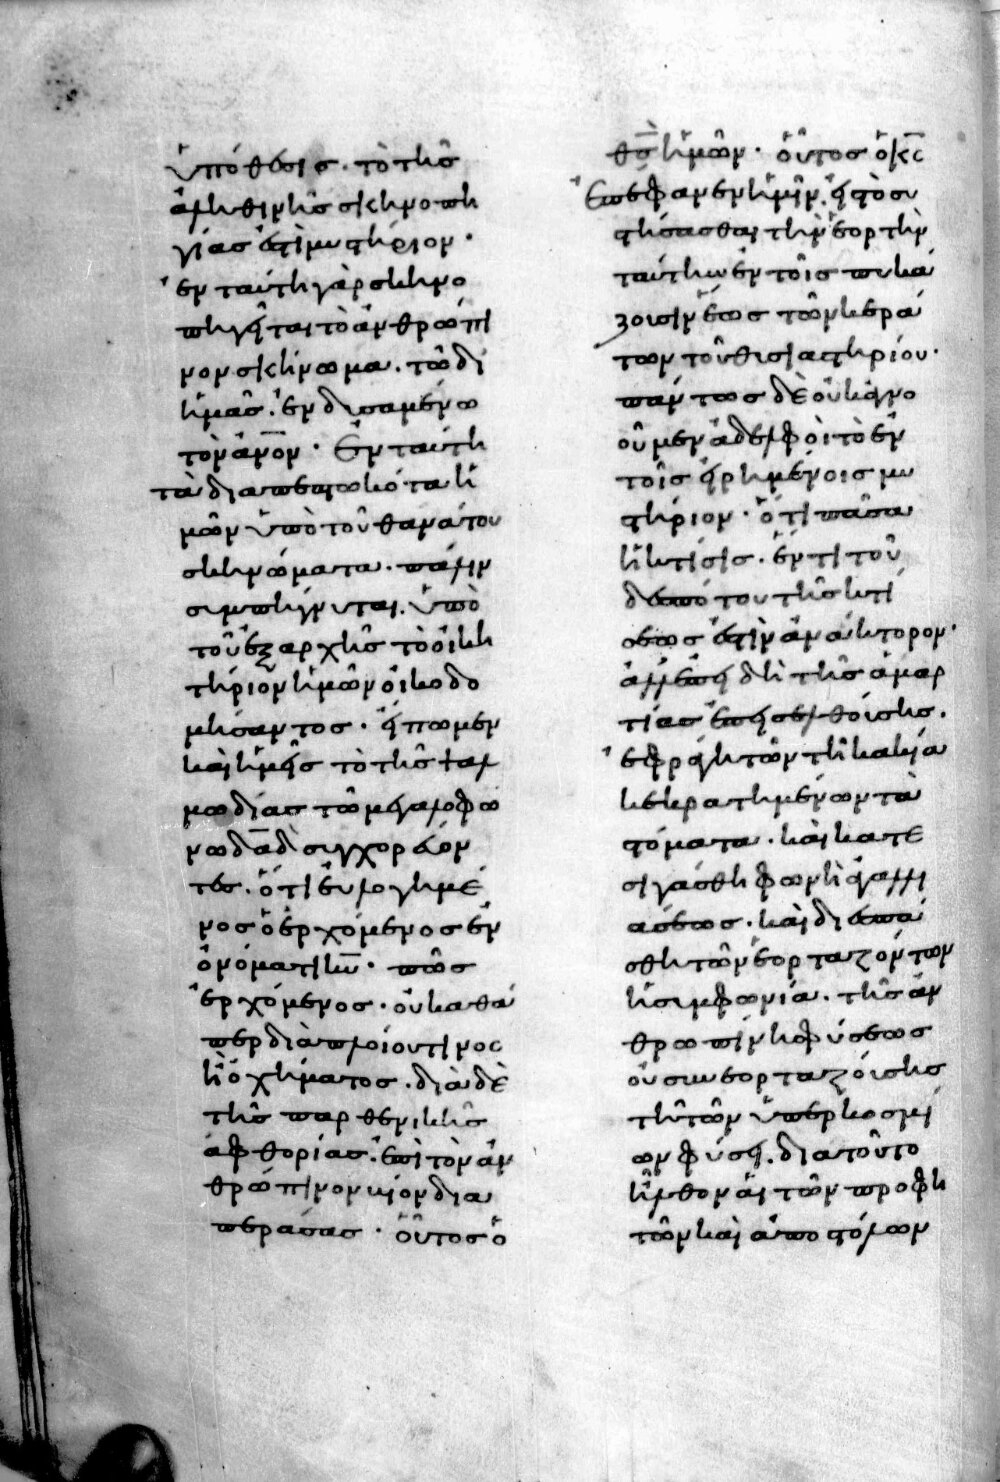 ὑπόθεσις. τὸ τῆς
ἀληθινῆς σκηνοπη
γίας ἐστὶ μυστήριον.
ἐν ταύτη γὰρ σκηνο
πηγεῖται τὸ ἀνθρώπι
νον σκήνωμα. τῶ δι
ἡμᾶς ἐνδυσαμένω
τὸν ἄνον. ἐν ταύτη
τὰ διαπεπτωκότα ἡ
μῶν ὑπὸ τοῦ θανάτου
σκηνώματα. πάλιν
συμπήγνυται. ὑπὸ
τοῦ ἐξαρχῆς τὸ οἰκη
τήριον ἡμῶν οἰκοδο
μήσαντος. εἴπωμεν
καὶ ἡμεῖς τὸ τῆς ψαλ
μωδίας τῶ μεγαλοφώ
νω δαδ συγχορεύον
τες. ὅτι εὐλογημέ
νος ὁ ἐρχόμενος ἐν
ὀνόματι κυ. πῶς
ἐρχόμενος. οὐ καθά
περ διὰ πλοίου τινος
ἢ ὀχήματος. διὰ δὲ
τῆς παρθενικῆς
ἀφθορίας. ἐπὶ τὸν ἀν
θρώπινον βίον δια
περάσας. οὗτος ὁ
θς ἡμῶν. οὗτος ὁ κς
ἐπέφανεν ἡμῖν. εἰς τὸ συ
στήσασθαι τὴν ἑορτὴν
ταύτην ἐν τοῖς πυκά
ζουσιν ἕως τῶν κερά
των τοῦ θυσιαστηρίου.
πάντως δὲ οὐκ ἀγνο
οῦμεν ἀδελφοὶ τὸ ἐν
τοῖς εἰρημένοις μυ
στήριον. ὅτι πᾶσα
ἡ κτίσις. ἕν τι τοῦ
δεσπότου τῆς κτί
σεως ἐστὶν ἀνάκτορον.
ἀλλ ἐπειδὴ τῆς ἁμαρ
τίας ἐπεισελθούσης.
ἐφράγη τῶν τῆ κακία
κεκρατημένων τὰ
στόματα. καὶ κατε
σιγάσθη φωνὴ ἀγαλλι
άσεως. καὶ διεσπά
σθη τῶν ἑορταζόντων
ἡ συμφωνία. τῆς ἀν
θρωπίνης φύσεως
οὐ συνεορταζούσης
τῆ τῶν ὑπερκοσμί
ων φύσει. διατοῦτο
ἦλθον αἱ τῶν προφη
τῶν καὶ ἀποστόλων